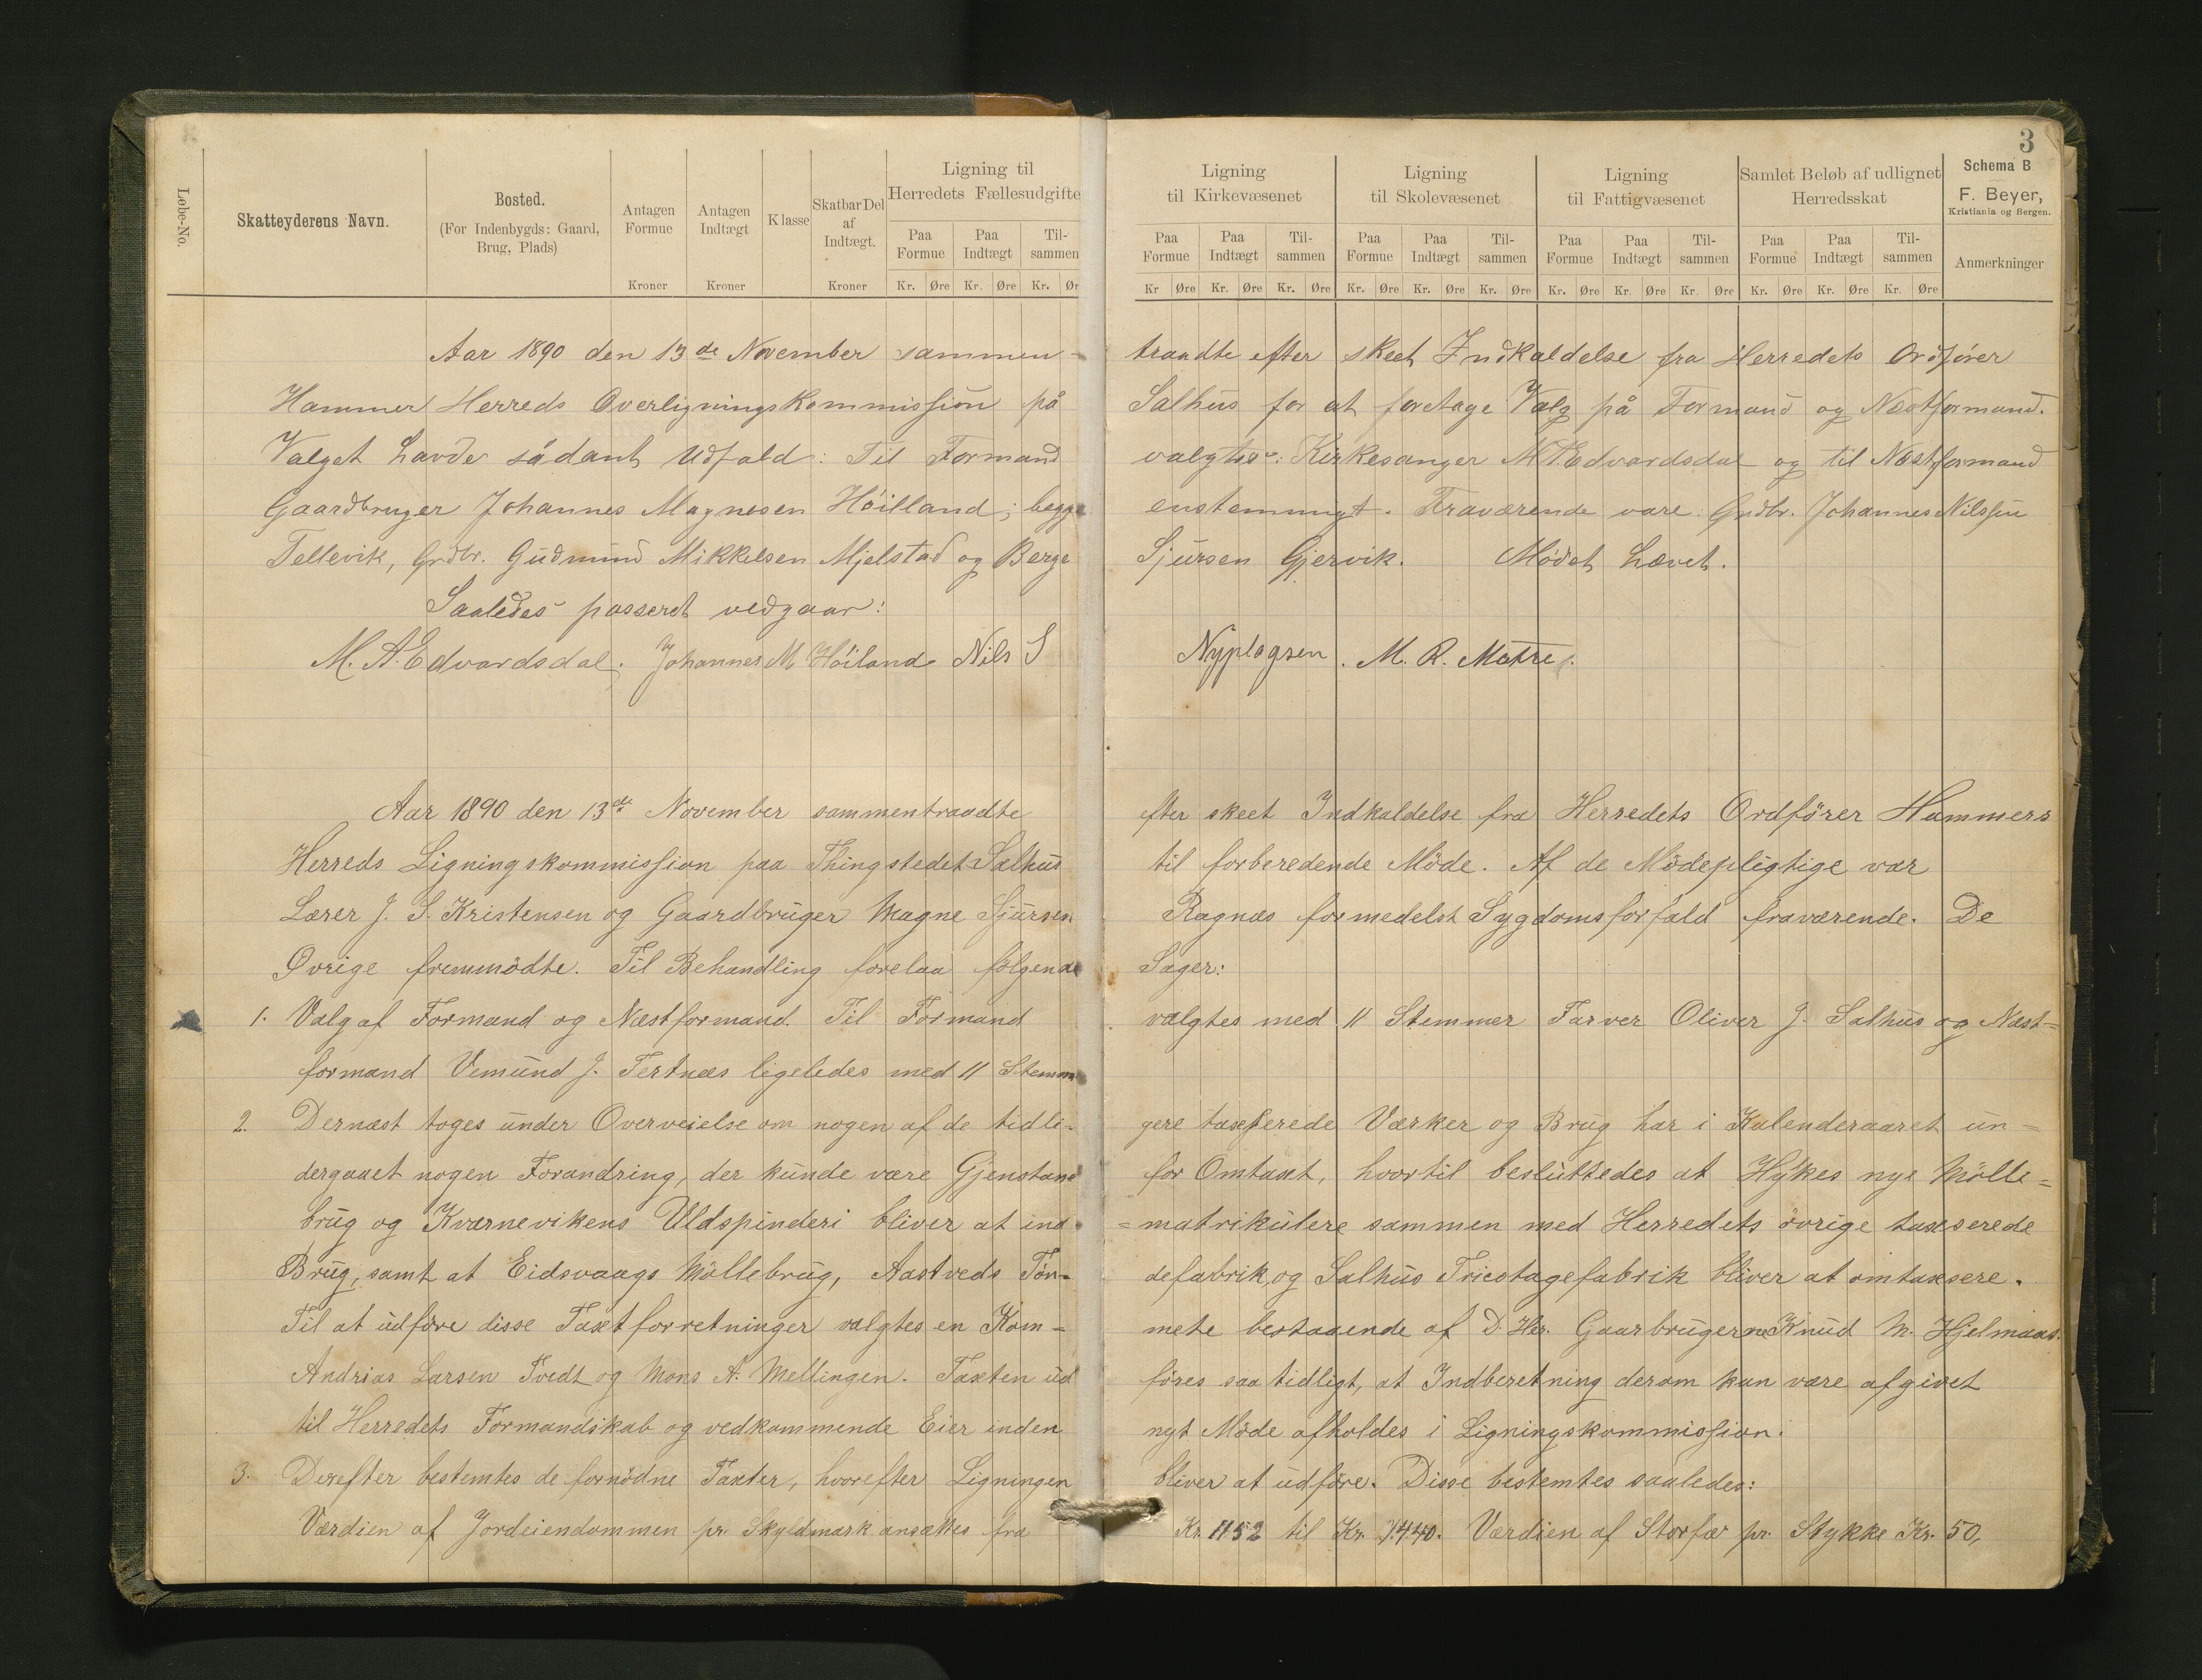 3
Løbe-No.
Skatteyderens Navn.
Bosted.
(For Indenbygds: Gaard,
Brug, Plads)
Antagen
Formue
Kroner
Antagen
Indtægt
Kroner
Klasse
Skatbar Del
af
Indtægt.
Kroner
Ligning til
Herredets Fællesudgifte
Paa Formue Paa Indtægt Til-sammen
Kr. Øre Kr. Øre Kr. Ør
Ligning
til Kirkevæsenet
Paa Formue Paa Indtægt Til-sammen
Kr Øre Kr. Øre Kr. Øre
Ligning
til Skolevæsenet
Paa Formue Paa Indtægt Til-sammen
Kr. Øre Kr. Øre Kr. Øre
Ligning
til Fattigvæsenet
Paa Formue Paa Indtægt Til-sammen
Kr. Øre Kr. Øre Kr. Øre
Samlet Beløb af udlignet
Herredsskat
Paa Formue Paa Indtægt Til-sammen
Kr. Øre Kr. Øre Kr. Øre
Schema B
F. Beyer,
Kristiania og Bergen.
Anmerkninger
Aar 1890 den 13de November sammen- traadte efter skeet Indkaldelse fra Herredets Ordfører
Hammer Herreds Overligningskommission på Salhus for at foretage Valg på Formand og Næstformand.
Valget havde sådant Udfald: Til Formand valgtes: Kirkesanger M. A. Edvardsdal og til Næstformand
Gaardbruger Johannes Magnesen Höilland; begge enstemmigt. Fraværende vare: Grdbr. Johannes Nilssen
Tellevik, Grdbr. Gudmund Mikkelsen Mjelstad og Berge Sjursen Gjervik. Mödet hævet.
Saaledes passeret vedgaar:
M. A. Edvardsdal. Johannes M Höiland Nils S Nyplagsen. M. R. Matre.
Aar 1890 den 13de November sammentraadte efter skeet Indkaldelse fra Herredets Ordförer Hammers
Herreds Ligningskommission paa Thingstedet Salhus til forberedende Möde. Af de Mödepligtige var
Lærer J. S. Kristensen og Gaardbruger Magne Sjursen Ragnæs formedelst Sygdomsforfald fraværende. De
Øvrige fremmödte. Til Behandling forelaa følgende Sager:
1. Valg af Formand og Næstformand. Til Formand valgtes med 11 Stemmer Farver Oliver J. Salhus og Næst=
formand Vemund J. Tertnæs ligeledes med 11 Stemm
2. Dernæst toges under Overveielse om nogen af de tidli- gere taxerede Værker og Brug har i Kalenderaaret un=
dergaaet nogen Forandring, der kunde være Gjenstand for Omtaxt, hvortil besluttedes at Hykes nye Mölle=
brug og Kværnevikens Uldspinderi bliver at ind =matrikulere sammen med Herredets övrige taxserede
Brug, samt at Eidsvaags Möllebrug, Aastveds Tön- defabrik og Salhus Tricotagefabrik bliver at omtaxsere.
Til at udföre disse Taxtforretninger valgtes en Kom- mete bestaaende af D. Hrr. Gaarbrugerne Knud M. Hjelmaas.
Andrias Larsen Tvedt og Mons A. Mellingen. Taxten ud föres saa tidligt, at Indberetning derom kan være afgivet
til Herredets Formandskab og vedkommende Eier inden nyt Möde afholdes i Ligningskommission.
3. Derefter bestemtes de fornödne Taxter, hvorefter Ligningen bliver at udföre. Disse bestemtes saaledes:
Værdien af Jordeiendommen pr. Skyldmark ansættes fra Kr. 1152 til Kr. 1440. Værdien af Storfæ pr. Stykke Kr. 50,